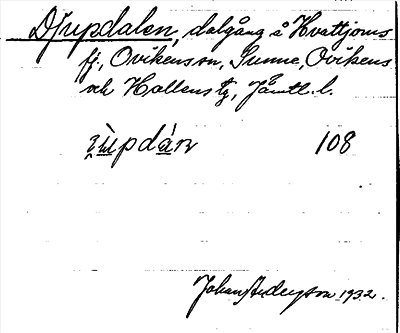 Djupdalen, dalgång å Hvattjoms
fj., Ovikens sn, Sunne, Ovikens
och Hallens tg, Jämtl. l.
108
Johan Anderson 1932.